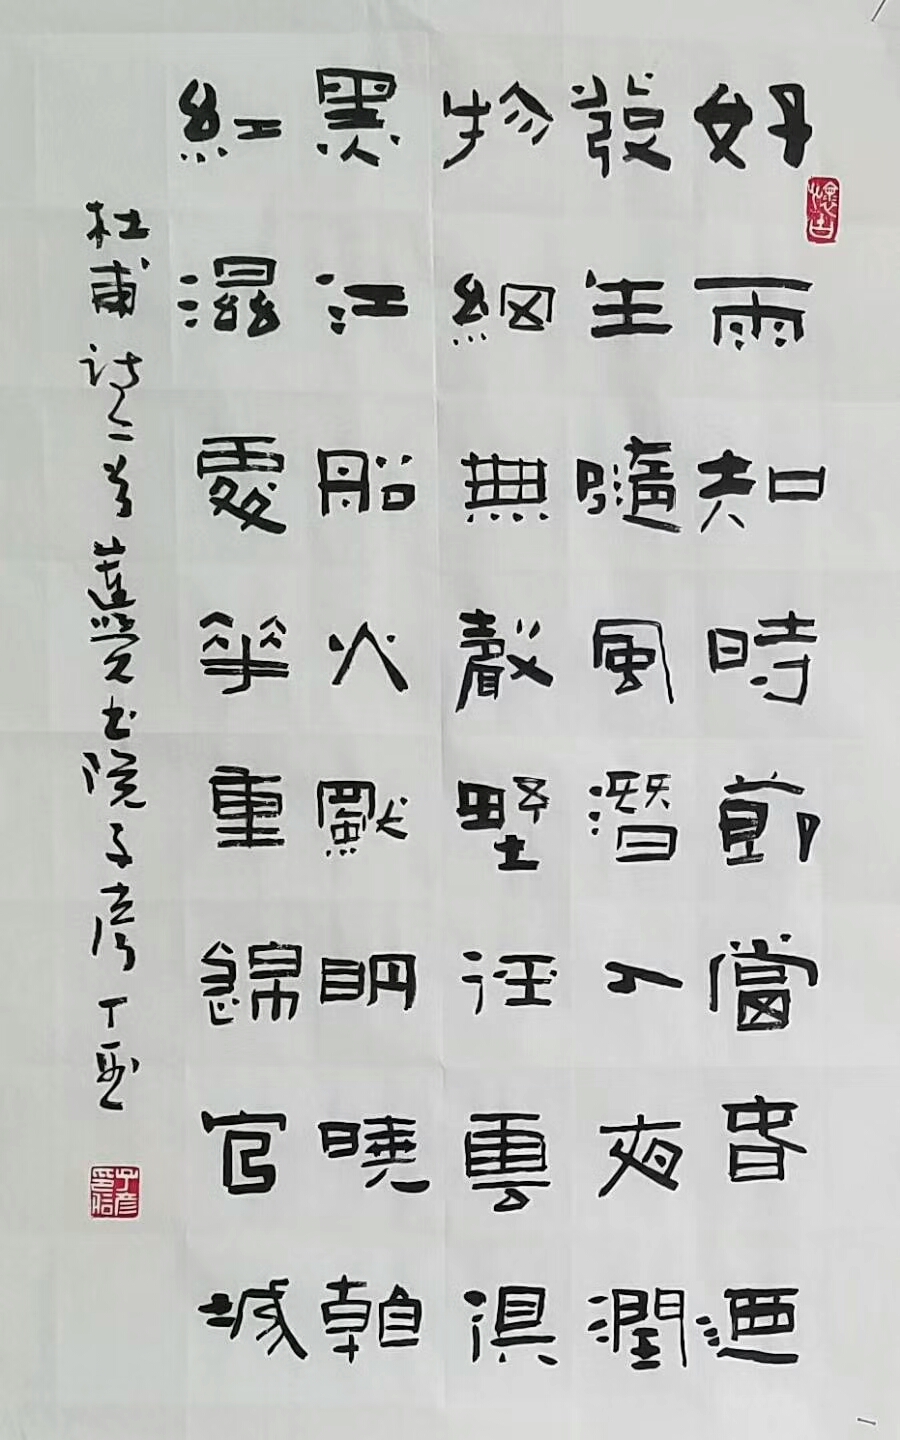 好雨知時節當春迺
發生隨風潛入夜潤
物細無聲野徑雲俱
黑江船火獨明曉看
紅濕處花重錦官城
杜甫诗一首書院子彦丁酉
懷古
子彦印信